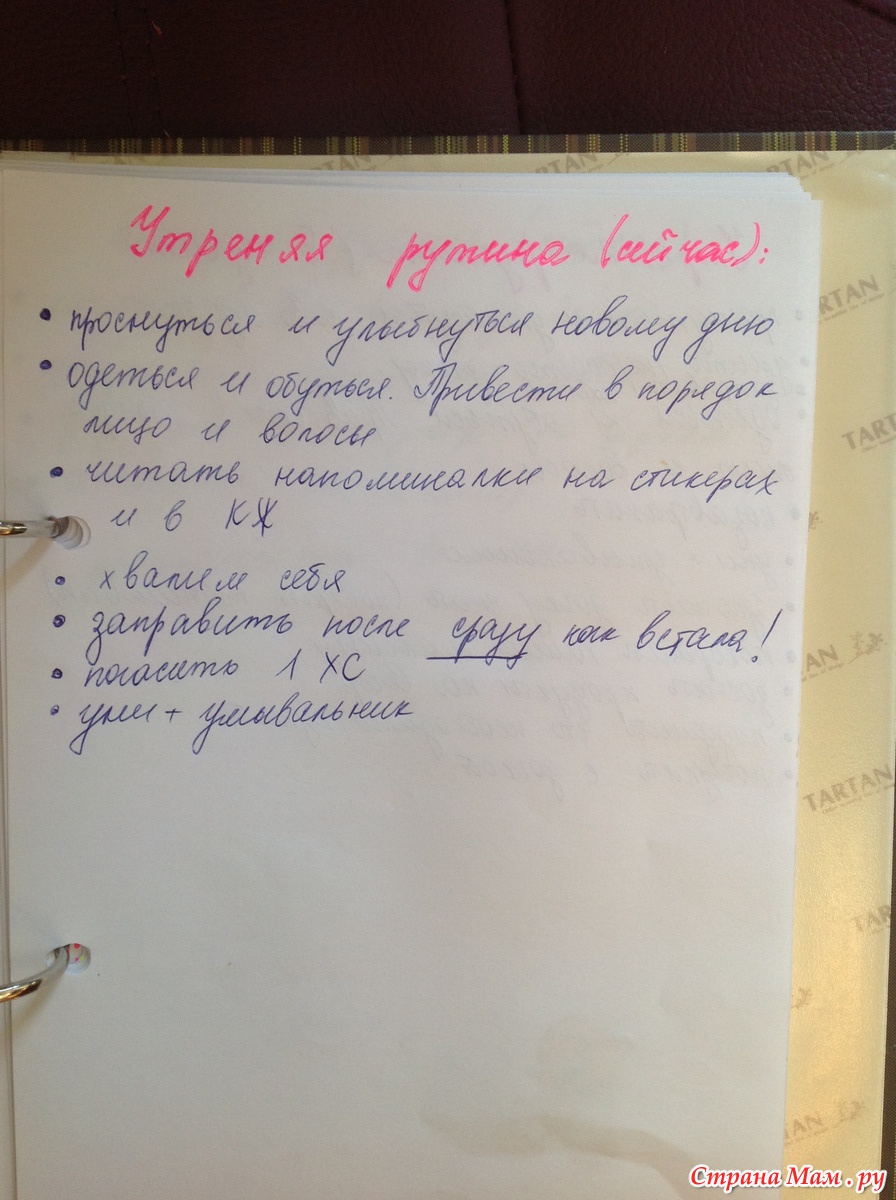 TARTAN
TARTAN
Утреняя рутина (сейчас):
• проснуться и улыбнуться новому дню
• одеться и обуться. Привести в порядок
лицо и волосы
• читать напоминалки на стикерах
и в КЖ
• хвалим себя
• заправить после сразу как встала!
• погасить 1 ХС
• уни + умывальник
TARTAN
TARTAN
TARTAN
TARTAN
TARTAN
Страна Мам.ру